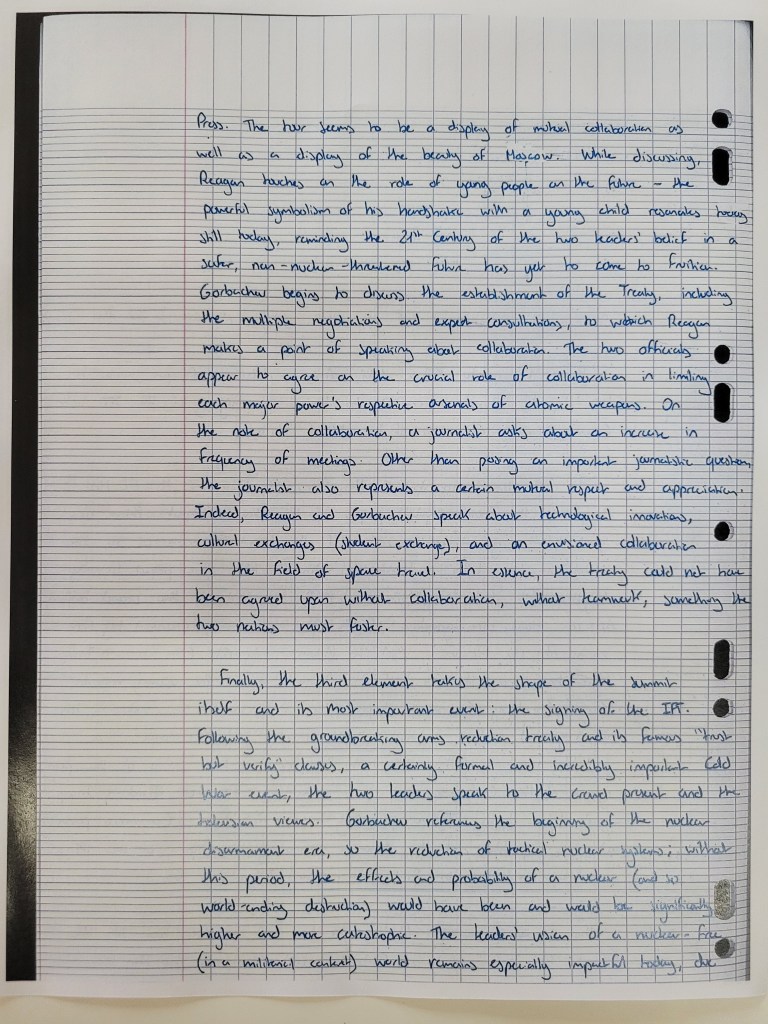 Press. The tour seems to be a display of mutual collaboration as
well as a display of the beauty of Moscow. While discussing,
Reagan touches on the role of young people on the future - the
powerful symbolism of his handshake with a young child resonates
still today, reminding the 21st Century of the two leaders' belief in a
safer, non-nuclear-threatened future has yet to come to fruition.
Gorbachev begins to discuss the establishment of the Treaty, including
the multiple negotiations and expert consultations, to which Reagan
makes a point of speaking about collaboration. The two officials
appear to agree on the crucial role of collaboration in limiting
each major power's respective arsenals of atomic weapons. On
the note of collaboration, a journalist asks about an increase in
frequency of meetings. Other than posing an important journalistic question,
the journalist also represents a certain mutual respect and appreciation.
Indeed, Reagan and Gorbachev speak about technological innovations,
cultural exchanges (student exchange), and an envisioned collaboration
in the field of space travel. In essence, the treaty could not have
been agreed upon without collaboration, without teamwork, something the
two nations must foster.
Finally, the third element takes the shape of the summit
itself and its most important event: the signing of the
Following the groundbreaking arms reduction treaty and its famous "trust
but verify" clauses, a certainly formal and incredibly important Cold
War event, the two leaders speak to the crowd present and the
television viewers. Gorbachev references the beginning of the nuclear
disarmament era, so the reduction of tactical nuclear systems; without
this period, the effects and probability of a nuclear (and so
world-ending destruction) would have been and would be significantly
higher and more catastrophic. The leaders' vision of a nuclear-free
(in a militarial context) world remains especially impactful today, due